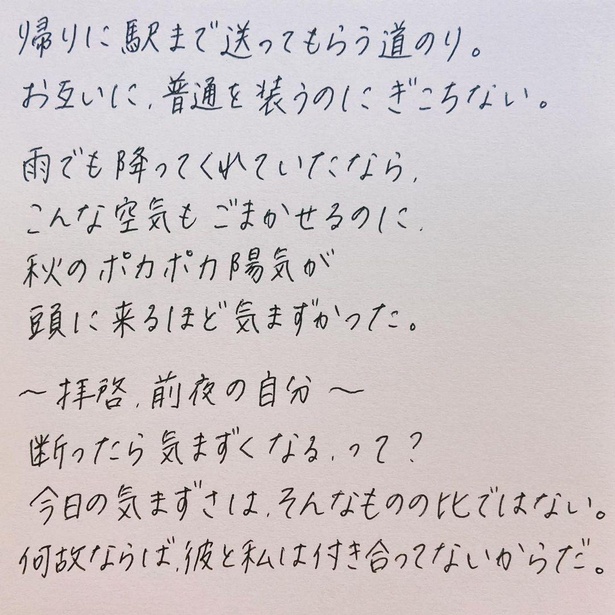 帰りに駅まで送ってもらう道のり。
お互いに、普通を装うのにぎこちない。
雨でも降ってくれていたなら、
こんな空気もごまかせるのに、
秋のポカポカ陽気が
頭に来るほど気まずかった。
〜拝啓、前夜の自分〜
断ったら気まずくなる、って?
今日の気まずさは、そんなものの比ではない。
何故ならば、彼と私は付き合ってないからだ。